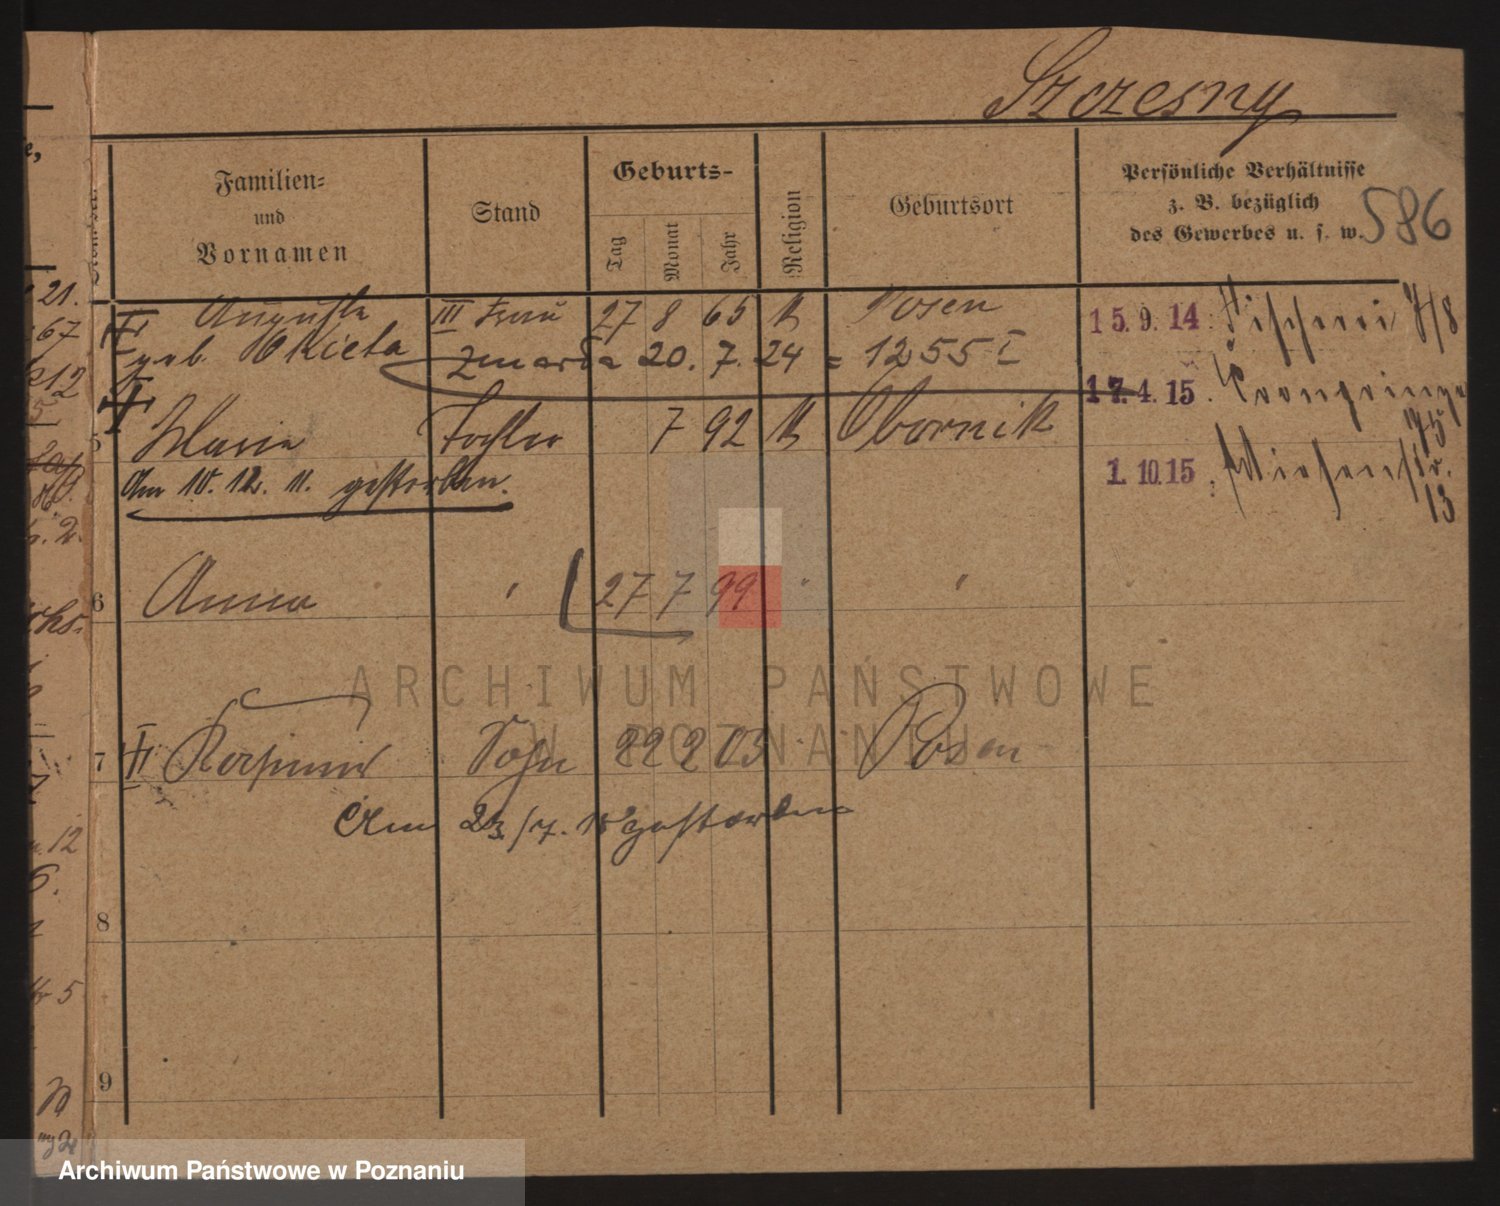 Szczesny
Familien=
und
Vornamen
Stand
Geburts-
Tag
Monat
Jahr
Religion
Geburtsort
Persönliche Verhältnisse
z. B. bezüglich
des Gewerbes u. s. w.
586
21.
67
12
Auguste III Frau 27 8 65 k Posen
15.9.14. Fischerei 7/8
geb. zmarła 20. 7. 24 = 1255 I
17.4.15.
5 Marie Tochter 7 92 k Obornik
1.10.15: Wiesenstr. 13
Am 10. 12. 11. gestorben.
6 Anna 27 7 99
ARCHIWUM PAŃSTWOWE
W POZNANIU
7 Kasimir Sohn 22 2 03 Posen
Am 23/7. 15 gestorben
12
8
5
9
Archiwum Państwowe w Poznaniu